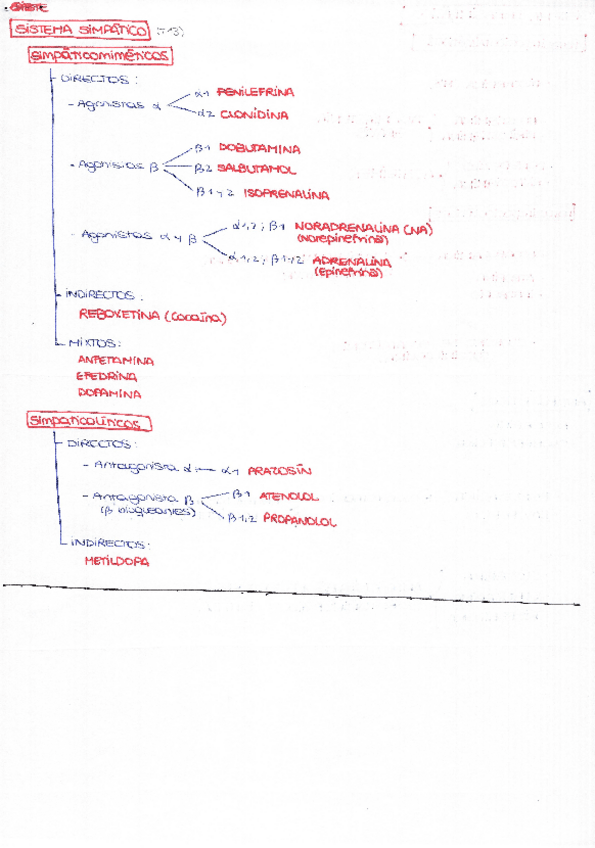 SISTEMA SIMPÁTICO
SIMPÁTICOMIMÉTICOS
DIRECTOS:
- Agonistas α
α1 FENILEFRINA
α2 CLONIDINA
- Agonistas β
β1 DOBUTAMINA
β2 SALBUTAMOL
β1 y 2 ISOPRENALINA
- Agonistas α y β
α1,2; β1 NORADRENALINA (NA)
(Norepinefrina)
α1,2; β1,2 ADRENALINA
(Epinefrina)
INDIRECTOS:
REBOXETINA (Cocaína)
MIXTOS:
ANFETAMINA
EFEDRINA
DOPAMINA
SIMPATICOLÍTICOS
DIRECTOS:
- Antagonista α — α1 PRAZOSÍN
- Antagonista β
(β bloqueantes)
β1 ATENOLOL
β1,2 PROPANOLOL
INDIRECTOS:
METILDOPA